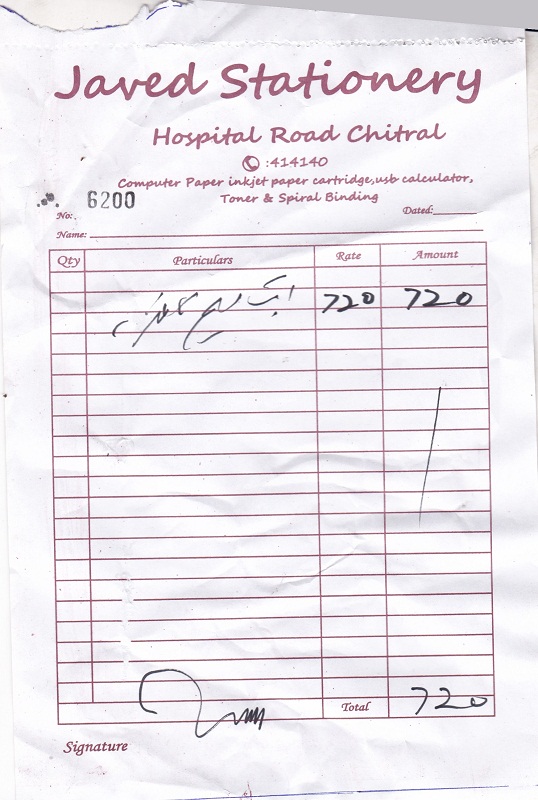 Javed Stationery
Hospital Road Chitral
:414140
Computer Paper inkjet paper cartridge,usb calculator,
Toner & Spiral Binding
No:. 6200
Dated:
Name:
Qty Particulars Rate Amount
ایک 720 720
Total 720
Signature